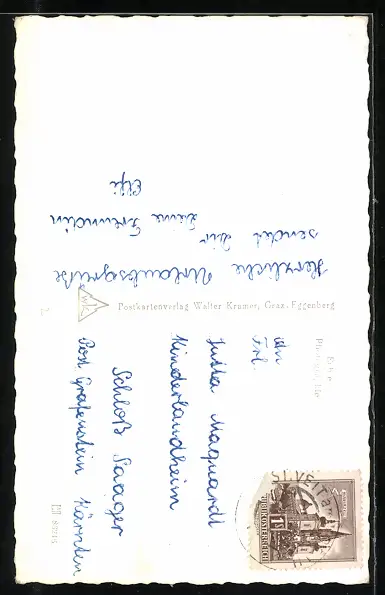 Herzliche Urlaubsgrüße
sendet Dir
Deine Freundin
Elfi
Postkartenverlag Walter Kramer, Graz-Eggenberg
An
Frl.
Jutta Maquardt
Kinderlandheim
Schloß Saager
Post Grafenstein Kärnten
REPUBLIK ÖSTERREICH